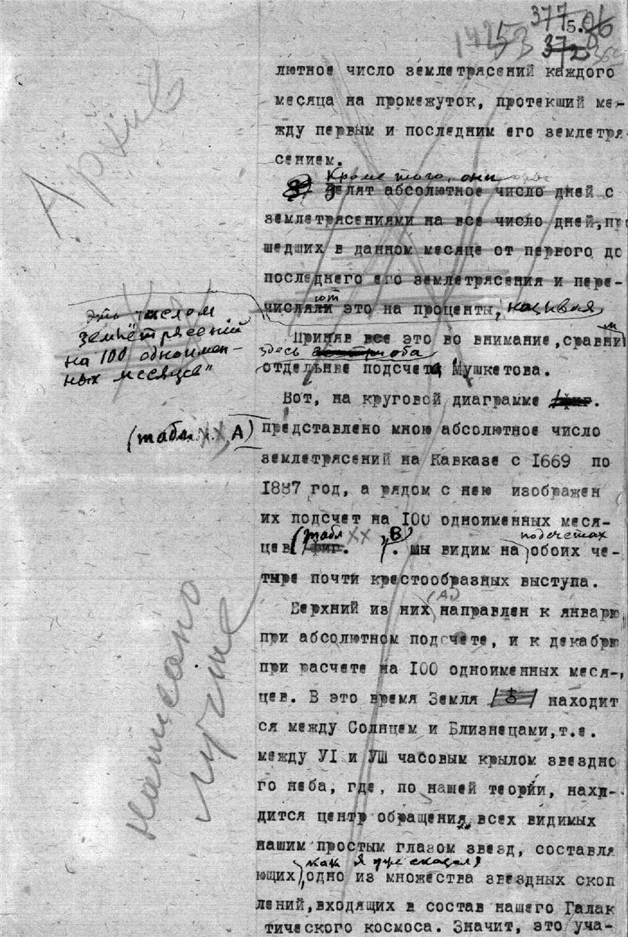 377
5.06
372
лютное число землетрясений каждого
месяца на промежуток, протекший ме-
жду первым и последним его землетря
сением.
Кроме того, они
делят абсолютное число дней с
землетрясениями на все число дней, про
шедших в данном месяце от первого до
последнего его землетрясения и пере-
числяют это на проценты, называя
это числом
землетрясений
на 100 одноимен-
ных месяцев"
Приняв все это во внимание, сравним
здесь
отдельные подсчеты Мушкетова.
Вот, на круговой диаграмме
(табл. XX, А)
представлено мною абсолютное число
землетрясений на Кавказе с 1669 по
1887 год, а рядом с нею изображен
их подсчет на 100 одноименных меся-
цев (табл XX В). Мы видим на обоих подсчетах че-
тыре почти крестообразных выступа.
Верхний из них (А) направлен к январю
при абсолютном подсчете, и к декабрю
при расчете на 100 одноименных меся-
цев. В это время Земля находит
ся между Солнцем и Близнецами, т.е.
между УI и УШ часовым крылом звездно
го неба, где, по нашей теории, нахо-
дится центр обращения всех видимых
нашим простым глазом звезд, составля
ющих, как я уже сказал, одно из множества звездных скоп
лений, входящих в состав нашего Галак
тического космоса. Значит, это уча-
Архив
написано
лучше